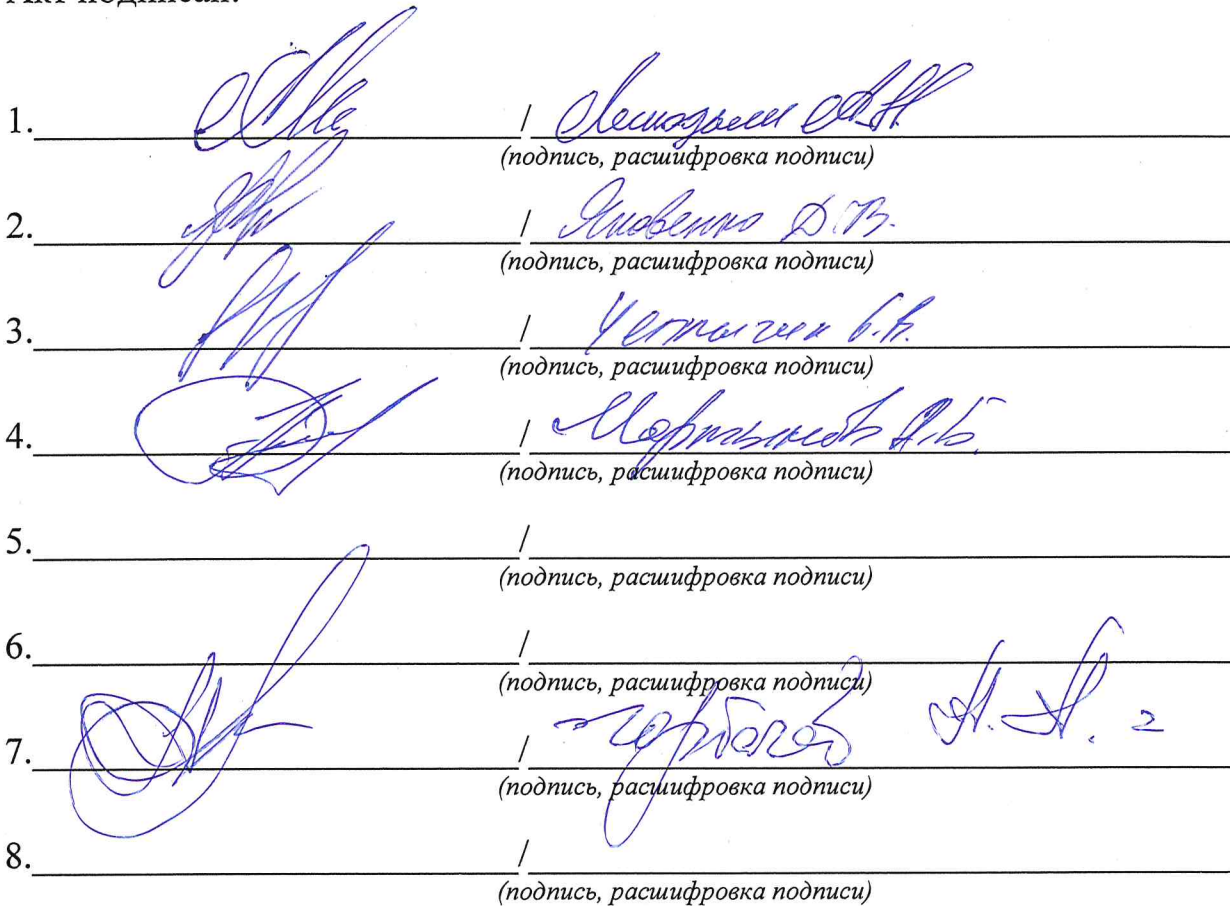 Акт подписан:
1. / А.Н.
(подпись, расшифровка подписи)
2. / Яковенко Д.В.
(подпись, расшифровка подписи)
3. /
(подпись, расшифровка подписи)
4. / Мартынов А.Б.
(подпись, расшифровка подписи)
5. /
(подпись, расшифровка подписи)
6. /
(подпись, расшифровка подписи)
7. / Горбачёв А.А.
(подпись, расшифровка подписи)
8. /
(подпись, расшифровка подписи)